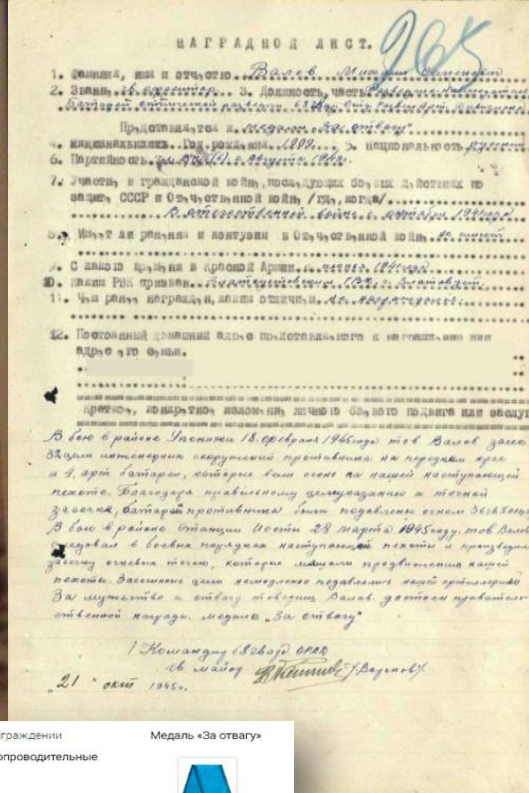 265
НАГРАДНОЙ ЛИСТ.
1. Фамилия, имя и отчество Валев Михаил
2. Звание гв. 3. Должность, часть
Батареи оптической разведки 68 гвар.
Представляется к медали "За отвагу"
4. Год рождения 1909 5. национальность русский
6. Партийность
7. Участие в гражданской войне, последующих боевых действиях по
защите СССР и Отечественной войне /где, когда/
В отечественной войне с октября 1941 года
8. Имеет ли ранения и контузии в Отечественной войне не имеет
9. С какого времени в Красной Армии с 1941 года
10. Каким РВК призван
11. Чем ранее награжден, за какие отличия не награждался.
12. Постоянный домашний адрес представляемого к награждению или
адрес его семьи.
Краткое, конкретное изложение личного боевого подвига или заслуг
В бою в районе 18 февраля 1945 года тов Валев засек
32 цели инженерных сооружений противника на переднем крае
и 4 арт батареи, которые вели огонь по нашей наступающей
пехоте. Благодаря правильному целеуказанию и точной
засечке, батареи противника были подавлены огнем
В бою в районе станции 28 марта 1945 году. тов Валев
следовал в боевых порядках наступающей пехоты и производил
засечку огневых точек, которые мешали продвижению нашей
пехоты. Засеченные цели немедленно подавлялись нашей артиллерией
За мужество и отвагу товарищ Валев достоин правитель
ственной награды медали "За отвагу"
Командир 68 гвар. ОРАД
гв майор
"21" окт 1945г.
граждении
Медаль «За отвагу»
опроводительные